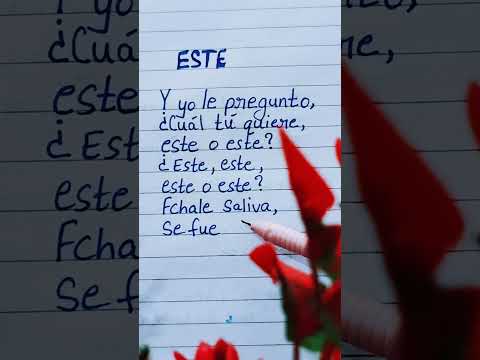 ESTE
Y yo le pregunto,
¿Cuál tú quiere,
este o este?
¿Este, este,
este o este?
Fchale Saliva,
Se fue